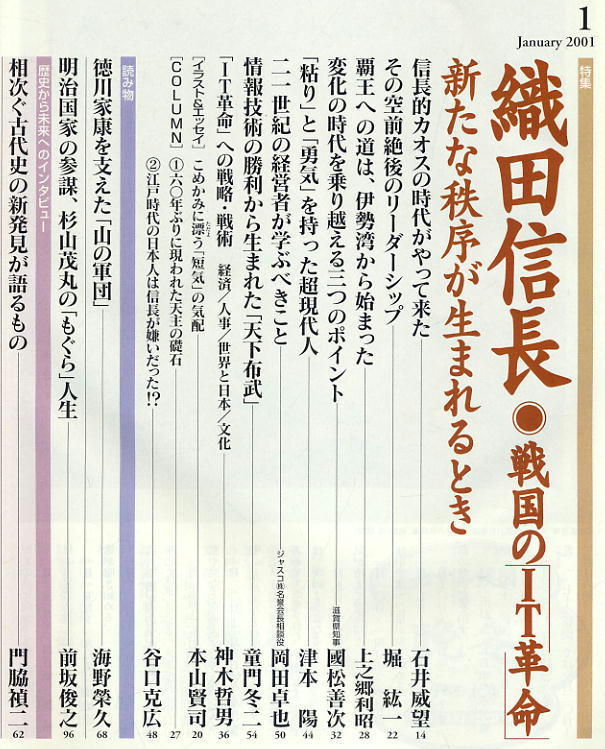 1
January 2001
特集
織田信長◉戦国の「IT革命」
新たな秩序が生まれるとき
信長的カオスの時代がやって来た 石井威望 14
その空前絶後のリーダーシップ 堀 紘一 22
覇王への道は、伊勢湾から始まった 上之郷利昭 28
変化の時代を乗り越える三つのポイント 滋賀県知事 國松善次 32
「粘り」と「勇気」を持った超現代人 津本 陽 44
二一世紀の経営者が学ぶべきこと ジャスコ㈱名誉会長相談役 岡田卓也 50
情報技術の勝利から生まれた「天下布武」 童門冬二 54
「IT革命」への戦略・戦術 経済／人事／世界と日本／文化 神木哲男 36
[イラスト&エッセイ] こめかみに漂う「短気」の気配 本山賢司 20
[COLUMN] ①六〇年ぶりに現われた天主の礎石 27
②江戸時代の日本人は信長が嫌いだった!? 谷口克広 48
読み物
徳川家康を支えた「山の軍団」 海野榮久 68
明治国家の参謀、杉山茂丸の「もぐら」人生 前坂俊之 96
歴史から未来へのインタビュー
相次ぐ古代史の新発見が語るもの 門脇禎二 62